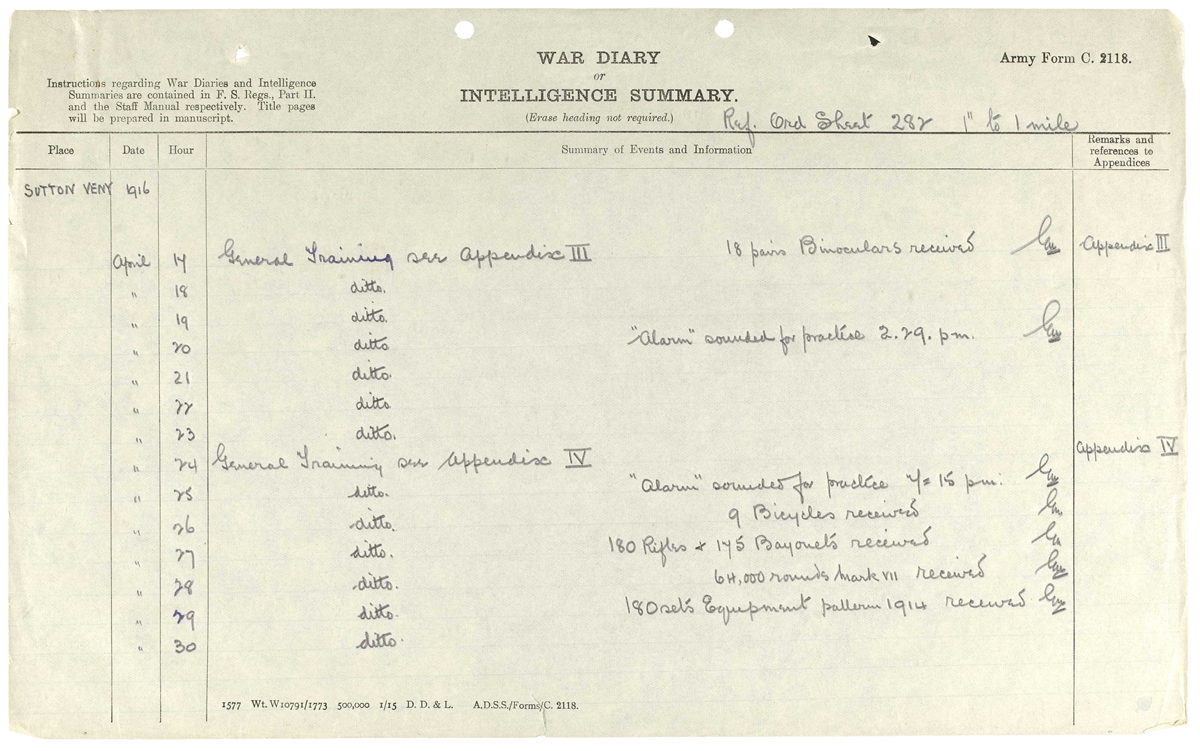 WAR DIARY
or
INTELLIGENCE SUMMARY.
(Erase heading not required.)
Army Form C. 2118.
Instructions regarding War Diaries and Intelligence
Summaries are contained in F. S. Regs., Part II.
and the Staff Manual respectively. Title pages
will be prepared in manuscript.
Ref. Ord Sheet 282 1" to 1 mile
Place Date Hour Summary of Events and Information Remarks and references to Appendices
SUTTON VENY 1916
April 17 General Training see Appendix III 18 pairs Binoculars received Appendix III
" 18 ditto.
" 19 ditto.
" 20 ditto "Alarm" sounded for practice 2.29. pm.
" 21 ditto.
" 22 ditto.
" 23 ditto.
" 24 General Training see Appendix IV Appendix IV
" 25 ditto. "Alarm" sounded for practice 15 pm.
" 26 ditto. 9 Bicycles received
" 27 ditto. 180 Rifles & 175 Bayonets received
" 28 ditto. 64,000 rounds Mark VII received
" 29 ditto. 180 sets Equipment pattern 1914 received
" 30 ditto.
1577 Wt. W10791/1773 500,000 1/15 D. D. & L. A.D.S.S./Forms/C. 2118.